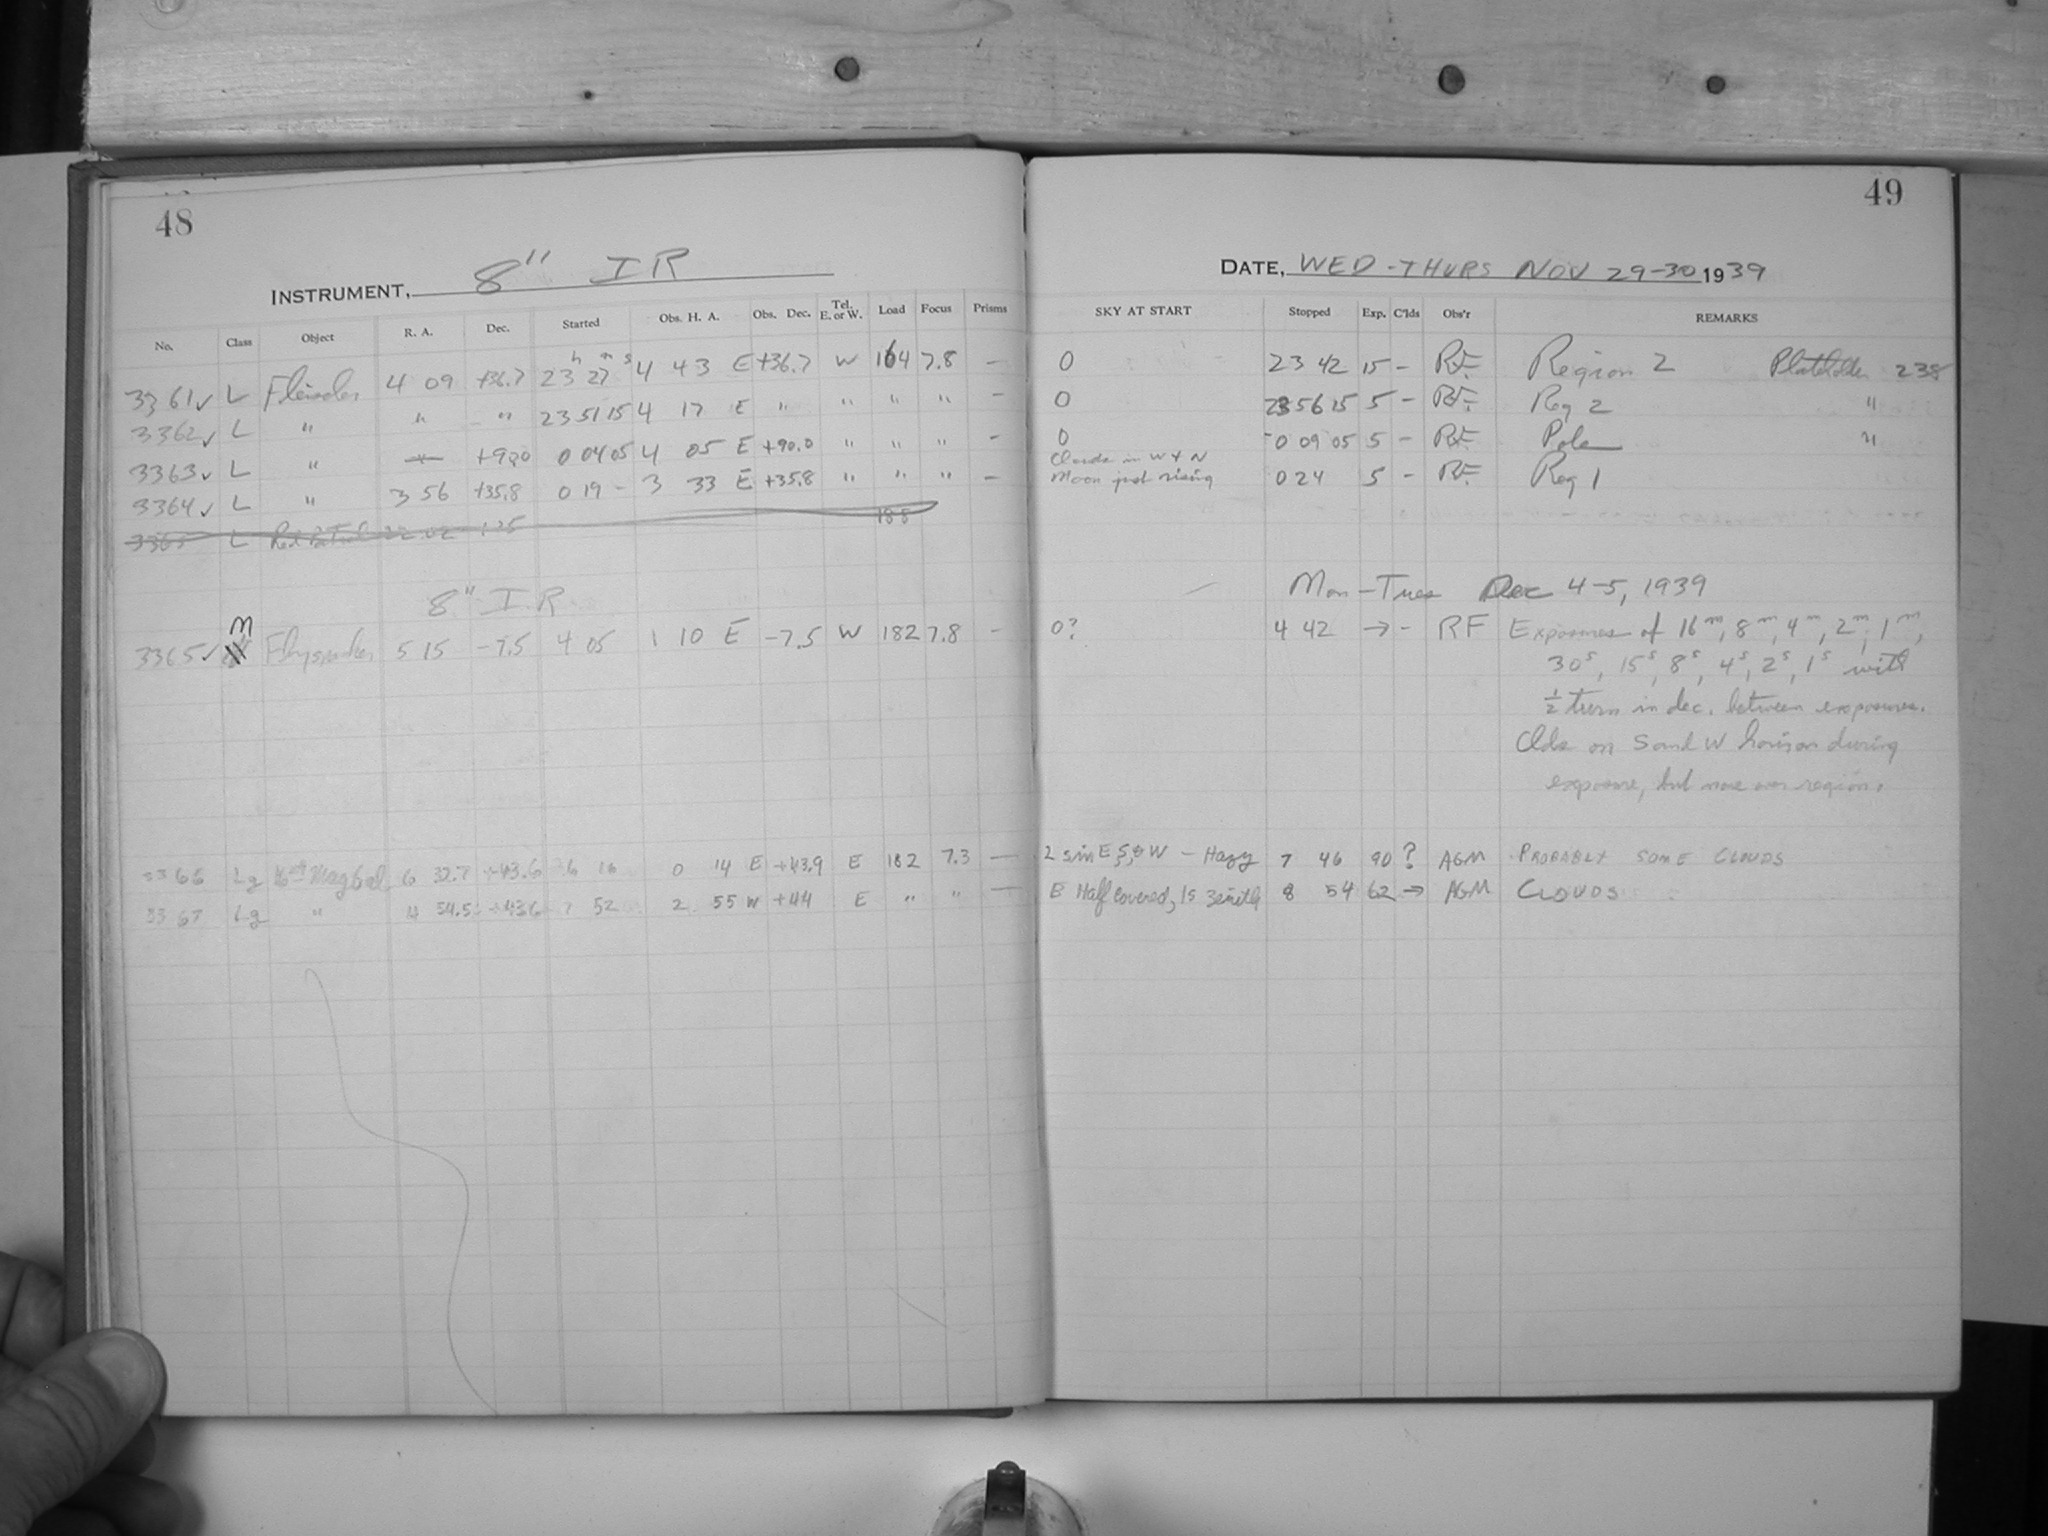 48
INSTRUMENT, 8" IR
No. Class Object R. A. Dec. Started Obs. H. A. Obs. Dec. Tel. E. or W. Load Focus Prisms
3361 ✓ L 4 09 +36.7 23h 27m s 4 43 E +36.7 W 164 7.8 —
3362 ✓ L " " " 23 51 15 4 17 E " " " " —
3363 ✓ L " — +90.0 0 04 05 4 05 E +90.0 " " " —
3364 ✓ L " 3 56 +35.8 0 19 - 3 33 E +35.8 " " " —
3365 L 188
8" IR
3365 ✓ M 5 15 -7.5 4 05 1 10 E -7.5 W 182 7.8 —
3366 Lg 6 32.7 +43.6 6 16 0 14 E +43.9 E 182 7.3 —
3367 Lg " 4 54.5 +43.6 7 52 2 55 W +44 E " " —
49
DATE, WED-THURS NOV 29-30 1939
SKY AT START Stopped Exp. C'lds Obs'r REMARKS
0 23 42 15 - RF Region 2 Plateholder 238
0 23 56 15 5 - RF Reg 2 "
0 0 09 05 5 - RF Pole "
Clouds in W + N
Moon just rising 0 24 5 - RF Reg 1
Mon-Tues Dec 4-5, 1939
0? 4 42 → - RF Exposures of 16m, 8m, 4m, 2m, 1m,
30s, 15s, 8s, 4s, 2s, 1s with
½ turn in dec. between exposures.
Clds on S and W horizon during
exposure, but none over region.
2 s in E, S, & W - Hazy 7 46 90 ? AGM PROBABLY SOME CLOUDS
E Half covered, 1s Zenith 8 54 62 → AGM CLOUDS